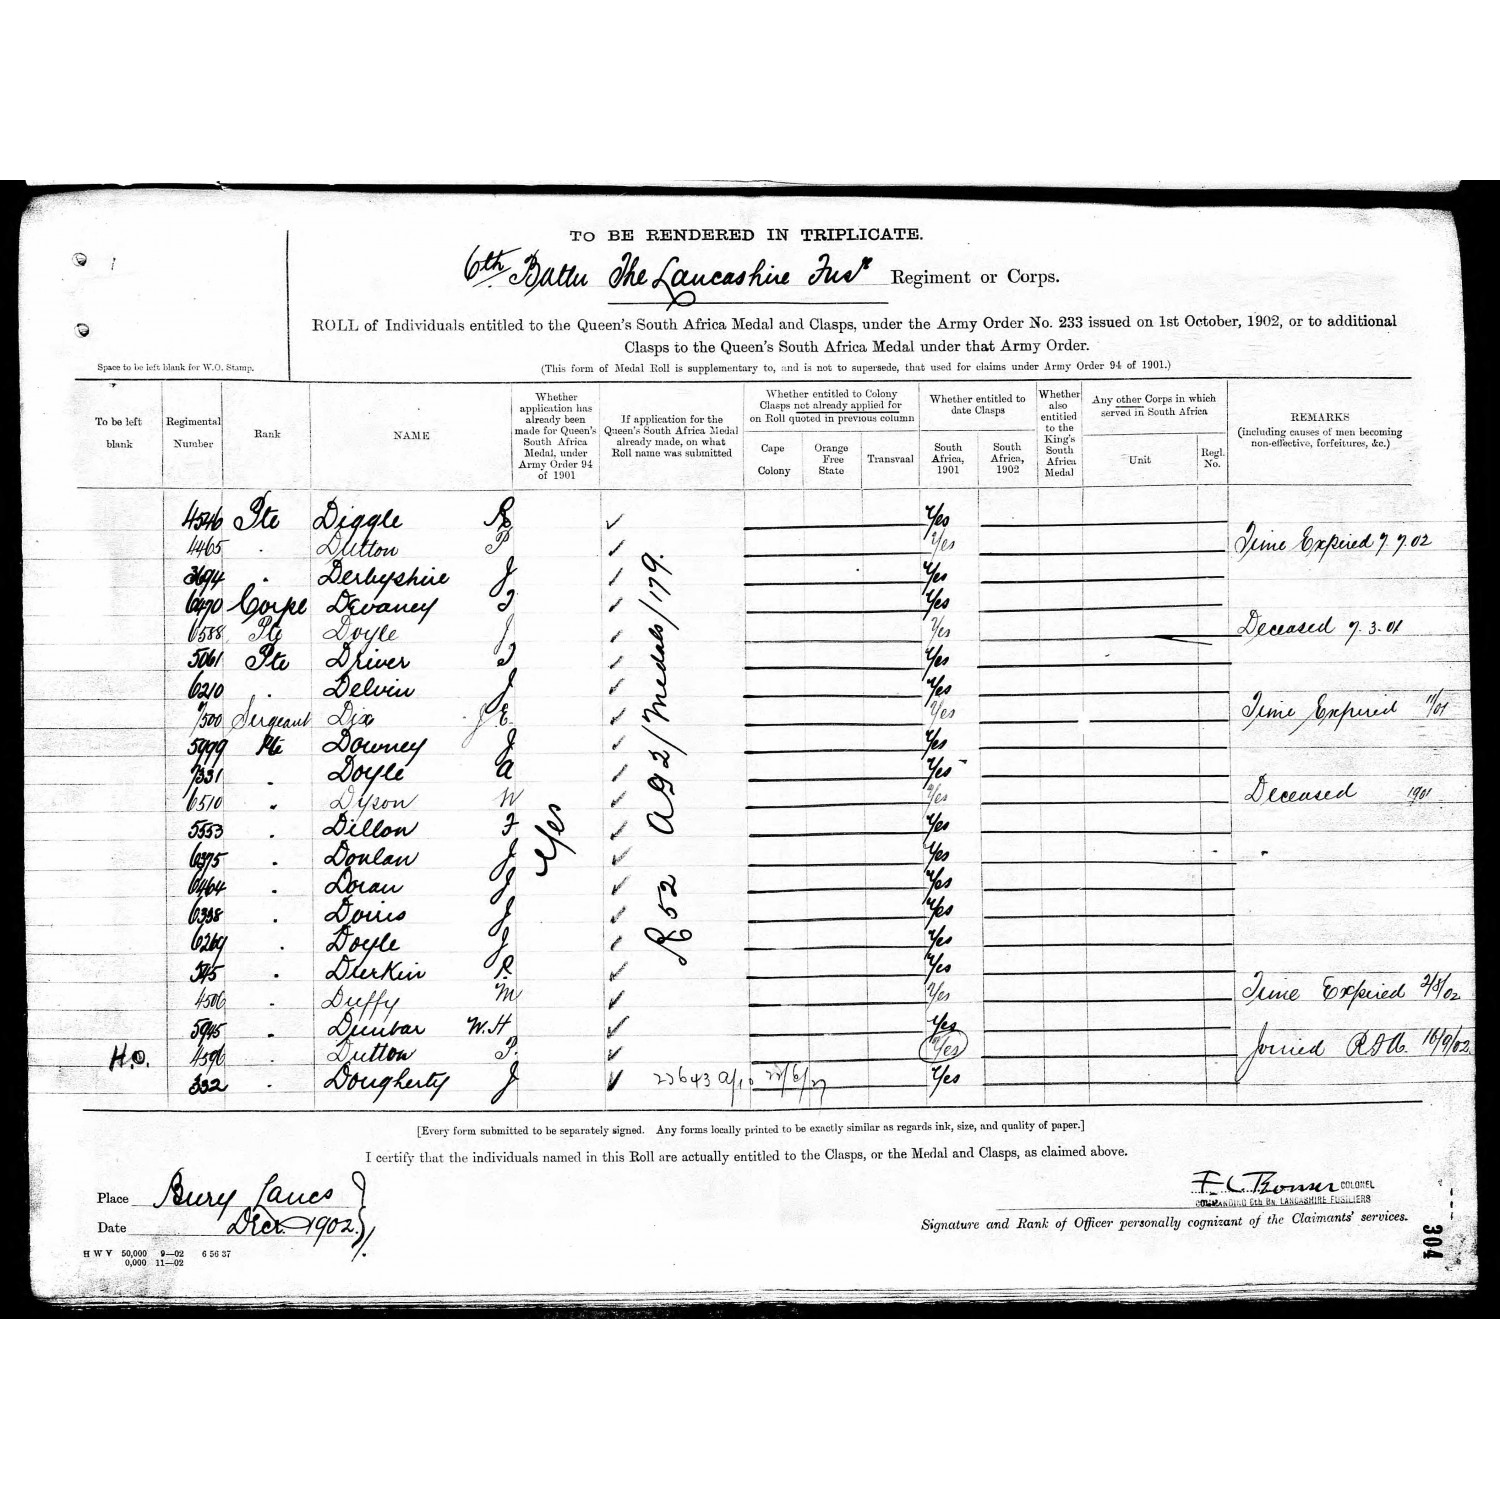 TO BE RENDERED IN TRIPLICATE.
6th Battn The Lancashire Fusrs Regiment or Corps.
ROLL of Individuals entitled to the Queen's South Africa Medal and Clasps, under the Army Order No. 233 issued on 1st October, 1902, or to additional
Clasps to the Queen's South Africa Medal under that Army Order.
Space to be left blank for W.O. Stamp.
(This form of Medal Roll is supplementary to, and is not to supersede, that used for claims under Army Order 94 of 1901.)
To be left blank
Regimental Number
Rank
NAME
Whether application has already been made for Queen's South Africa Medal, under Army Order 94 of 1901
If application for the Queen's South Africa Medal already made, on what Roll name was submitted
Whether entitled to Colony Clasps not already applied for on Roll quoted in previous column
Cape Colony
Orange Free State
Transvaal
Whether entitled to date Clasps
South Africa, 1901
South Africa, 1902
Whether also entitled to the King's South Africa Medal
Any other Corps in which served in South Africa
Unit
Regl. No.
REMARKS
(including causes of men becoming non-effective, forfeitures, &c.)
4546 Pte Diggle R Yes
4465 . Dutton P Yes Time Expired 7.7.02
3694 . Derbyshire J Yes
6470 Corpl Devaney T Yes
6588 Pte Doyle J Yes Deceased 7.3.01
5061 Pte Driver T Yes
6210 . Delvin J Yes
7500 Sergeant Dix J E. Yes Time Expired 11/01
5999 Pte Downey J Yes
7331 . Doyle A Yes
6510 . Dyson W Yes Deceased 1901
5553 . Dillon F Yes
6375 . Donlan J Yes
6464 . Doran J Yes
6338 . Doins J Yes
6269 . Doyle J Yes
545 . Durkin R. Yes
4506 . Duffy M Yes Time Expired 2/8/02
5945 . Dunbar W.H Yes
H.O. 4596 . Dutton P. Yes Joined 16/9/02
332 Dougherty J 22643 22/6/27 Yes
Yes
AG2/Medals/179.
[Every form submitted to be separately signed. Any forms locally printed to be exactly similar as regards ink, size, and quality of paper.]
I certify that the individuals named in this Roll are actually entitled to the Clasps, or the Medal and Clasps, as claimed above.
Place Bury Lancs
COLONEL
COMMANDING 6th BN. LANCASHIRE FUSILIERS
Date Decr 1902
Signature and Rank of Officer personally cognizant of the Claimants' services.
H W V 50,000 9—02 6 56 37
0,000 11—02
304